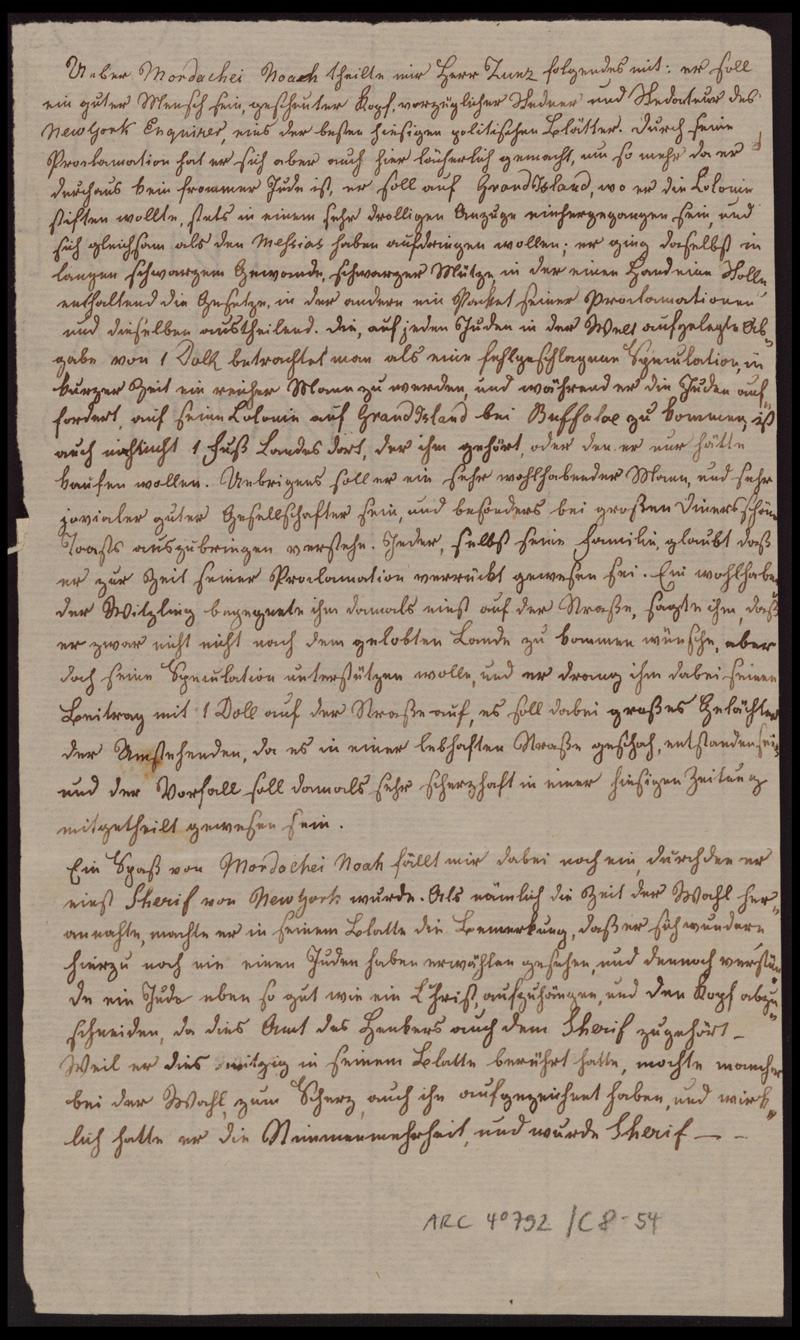 Ueber Mordachei Noach theilte mir Herr Zunz folgendes mit: er soll
ein guter Mensch sein, gescheuter Kopf, vorzüglicher Redner und Redacteur des
NewYork Enquirer, eins der besten hiesigen politischen Blätter. Durch seine
Proclamation hat er sich aber auch hier lächerlich gemacht, um so mehr da er
durchaus kein frommer Jude ist, er soll auf GrandIsland, wo er die Colonie
stiften wollte, stets in einem sehr drolligen Anzuge einhergegangen sein, und
sich gleichsam als den Messias haben aufdringen wollen; er ging daselbst in
langen schwarzem Gewande, schwarzer Mütze, in der einen Hand eine Rolle
enthaltend die Gesetze, in der andern ein Packet seiner Proclamationen
und dieselben austheilend. Die, auf jeden Juden in der Welt aufgelegte Ab-
gabe von 1 Doll. betrachtet man als eine fehlgeschlagene Speculation, in
kurzer Zeit ein reicher Mann zu werden, und während er die Juden auf-
fordert, auf seine Colonie auf GrandIsland bei Buffaloe zu kommen, ist
auch nicht 1 Fuß Landes dort, der ihm gehört, oder den er nur hätte
kaufen wollen. Uebrigens soll er ein sehr wohlhabender Mann, und sehr
jovialer guter Gesellschafter sein, und besonders bei großen Diners schöne
Toasts auszubringen verstehe. Jeder, selbst seine Familie, glaubt daß
er zur Zeit seiner Proclamation verrückt gewesen sei. Ein wohlhaben
der Witzling begegnete ihm damals einst auf der Straße, sagte ihm, daß
er zwar nicht nicht nach dem gelobten Lande zu kommen wünsche, aber
doch seine Speculation unterstützen wolle, und er drang ihm dabei seinen
Beitrag mit 1 Doll auf der Straße auf, es soll dabei großes Gelächter
der Umstehenden, da es in einer lebhaften Straße geschah, entstanden sein,
und der Vorfall soll damals sehr scherzhaft in einer hiesigen Zeitung
mitgetheilt gewesen sein.
Ein Spaß von Mordachei Noah fällt mir dabei noch ein, durch den er
einst Sherif von NewYork wurde. Als nämlich die Zeit der Wahl her-
annahte, machte er in seinem Blatte die Bemerkung, daß er sich wundere,
hierzu noch nie einen Juden haben erwählen gesehen, und dennoch verstün-
de ein Jude eben so gut wie ein Christ aufzuhängen, und den Kopf abzu-
schneiden, da dies Amt des Henkers auch dem Sherif zugehört –
Weil er dies witzig in seinem Blatte berührt hatte, mochte mancher
bei der Wahl, zum Scherz, auch ihn aufgezeichnet haben, und wirk-
lich hatte er die Stimmenmehrheit, und wurde Sherif – –
ARC 4°792 /C8-54